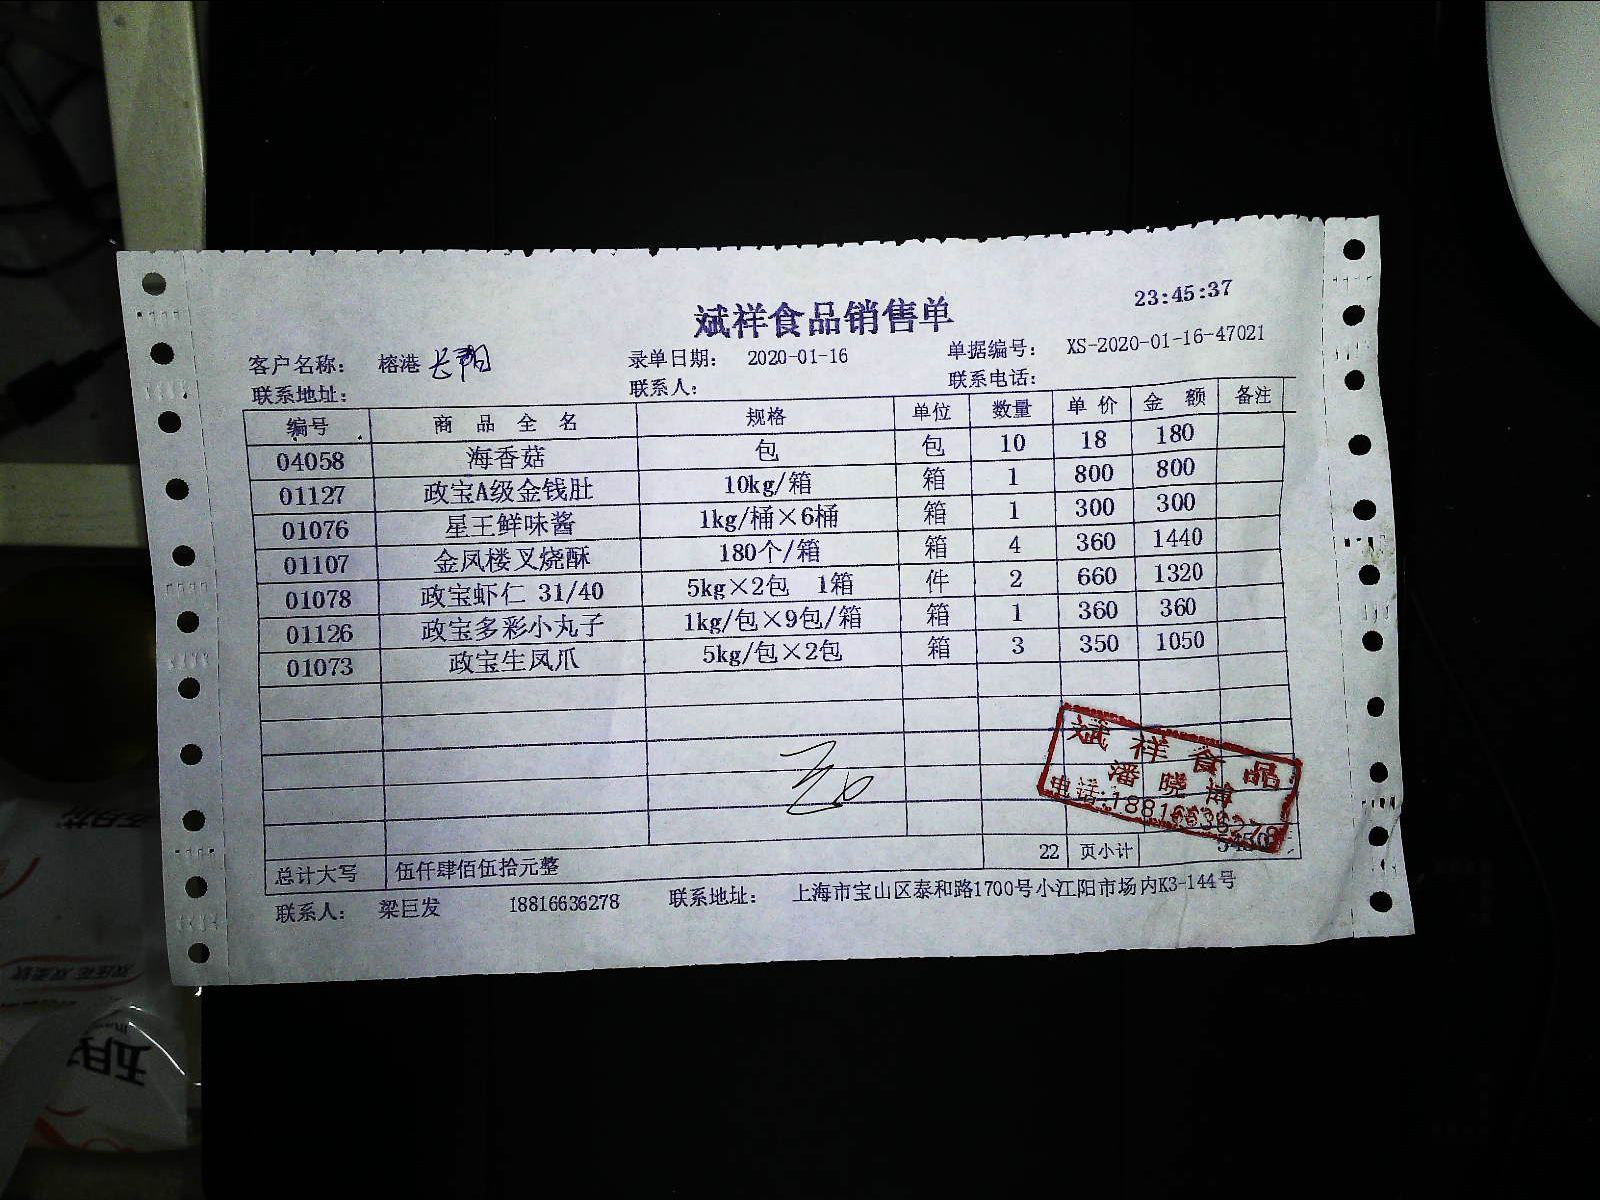 23:45:37
斌祥食品销售单
客户名称： 榕港 长阳 录单日期： 2020-01-16 单据编号： XS-2020-01-16-47021
联系地址： 联系人： 联系电话：
编号 商 品 全 名 规格 单位 数量 单 价 金 额 备注
04058 海香菇 包 包 10 18 180
01127 政宝A级金钱肚 10kg/箱 箱 1 800 800
01076 星王鲜味酱 1kg/桶×6桶 箱 1 300 300
01107 金凤楼叉烧酥 180个/箱 箱 4 360 1440
01078 政宝虾仁 31/40 5kg×2包 1箱 件 2 660 1320
01126 政宝多彩小丸子 1kg/包×9包/箱 箱 1 360 360
01073 政宝生凤爪 5kg/包×2包 箱 3 350 1050
斌祥食品
潘晓博
电话:18816636278
总计大写 伍仟肆佰伍拾元整 22 页小计 5450
联系人： 梁巨发 18816636278 联系地址： 上海市宝山区泰和路1700号小江阳市场内K3-144号